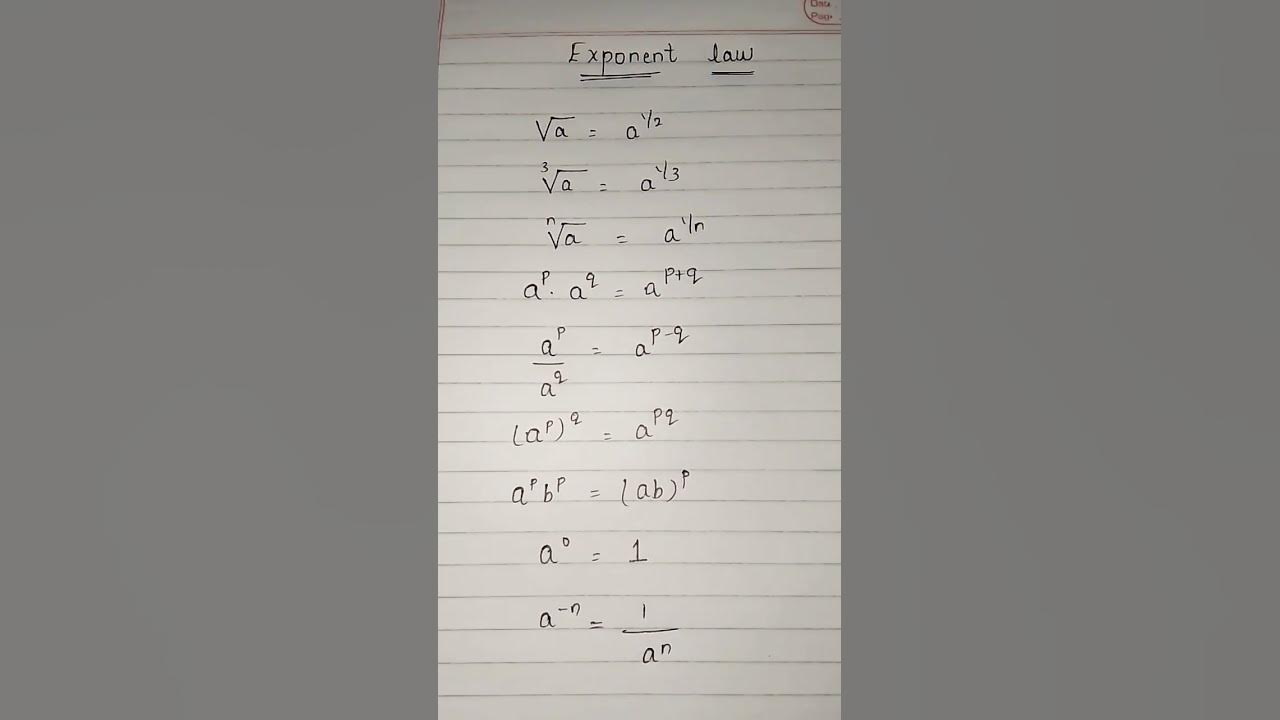 Dat
Pag
Exponent law
√a = a^1/2
³√a = a^1/3
ⁿ√a = a^1/n
a^p . a^q = a^p+q
a^p/a^q = a^p-q
(a^p)^q = a^pq
a^p b^p = (ab)^p
a^0 = 1
a^-n = 1/a^n